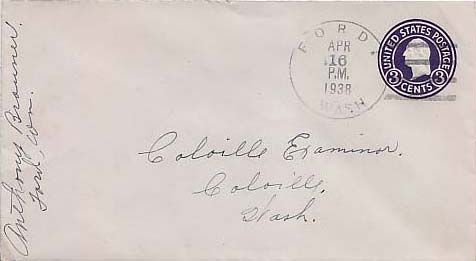 FORD
APR
16
P.M.
1938
WASH
UNITED STATES POSTAGE
3 CENTS 3
Colville Examiner.
Colville,
Wash.
Anthony
Ford,